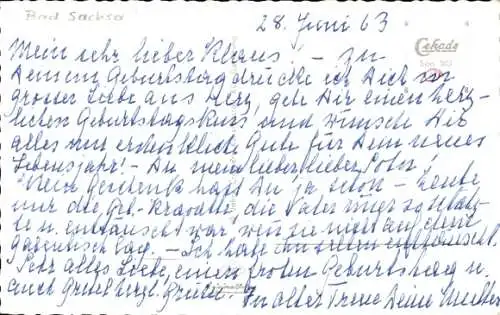 Bad Sachsa
28. Juni 63
Cekade
Mein sehr lieber Klaus! – Zu
Deinem Geburtstag drücke ich Dich in
grosser Liebe ans Herz, gebe Dir einen herz-
lichen Geburtstagskuss und wünsche Dir
alles nur erdenkliche Gute für Dein neues
Lebensjahr! – Du mein lieber lieber Sohn!
Mein Geschenk hast Du ja schon – heute
nur die Krawatte, die Vater
u. enttäuscht war, weil sie nicht auf dem
lag. – Ich habe
alles Liebe, einen frohen Geburtstag u.
auch Grüße. In alter Treue Deine Mutter